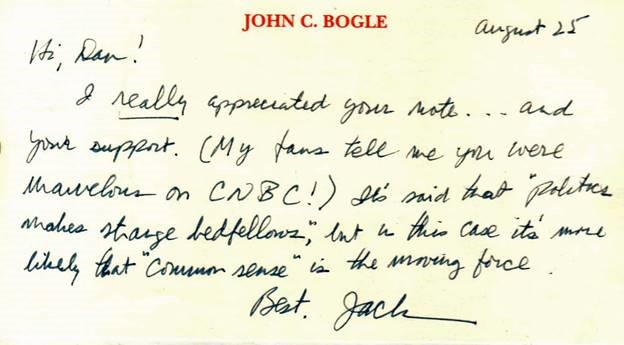 JOHN C. BOGLE
August 25
Hi, Dan!
I really appreciated your note... and
your support. (My fans tell me you were
marvelous on CNBC!) It's said that "politics
makes strange bedfellows," but in this case it's more
likely that "common sense" is the moving force.
Best. Jack